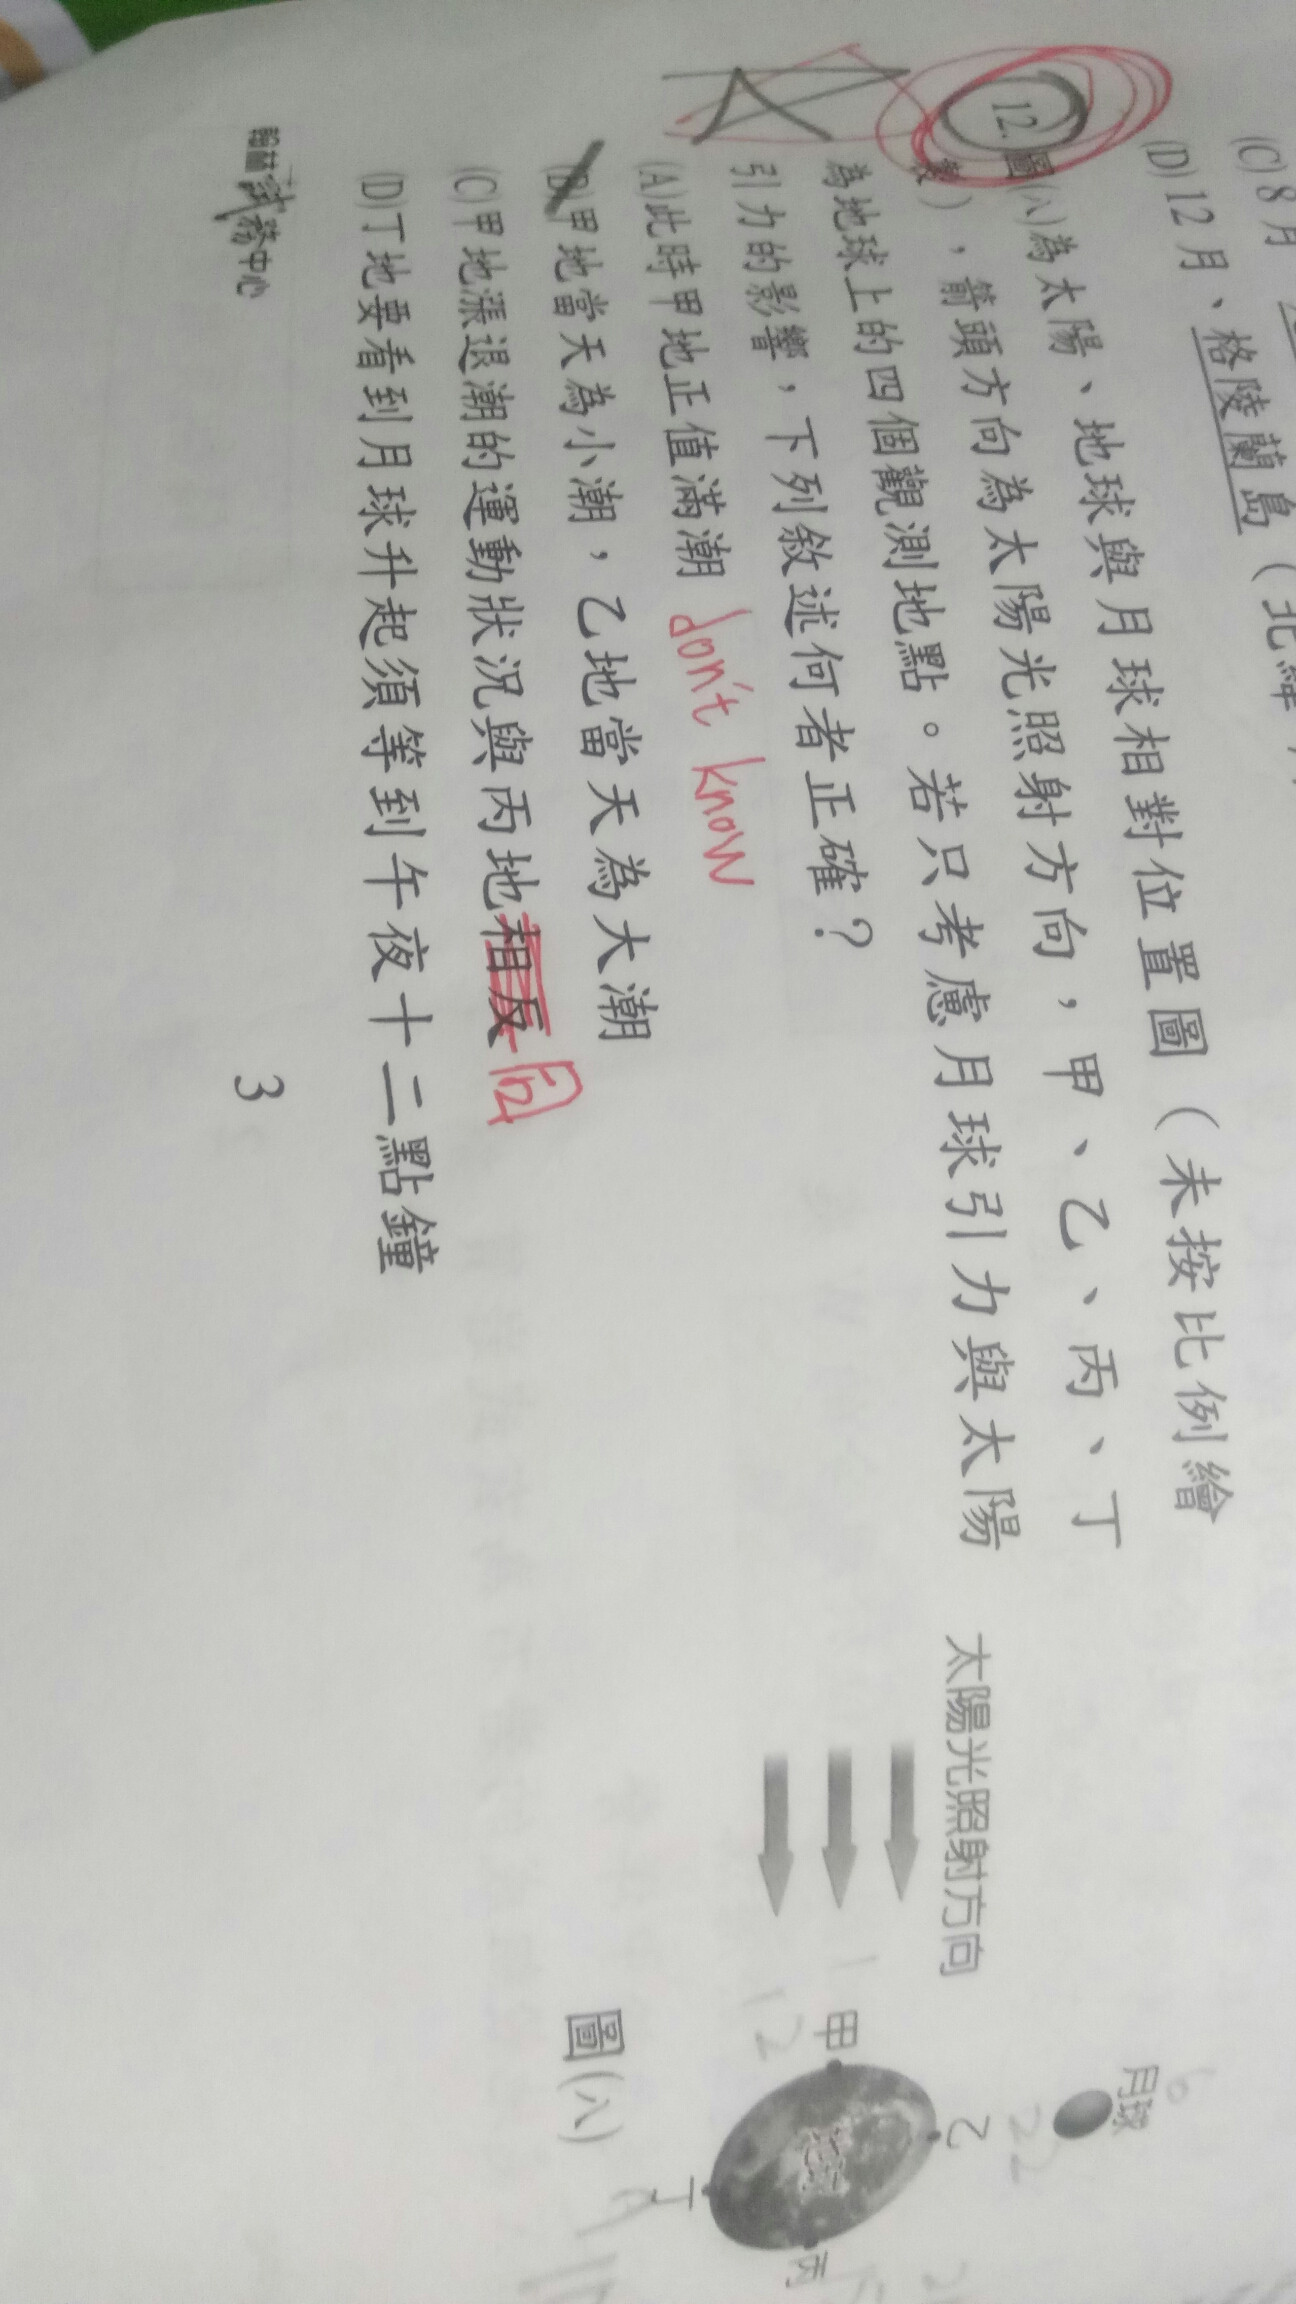 (C) 8月
(D) 12月、格陵蘭島(北緯
12. 圖(八)為太陽、地球與月球相對位置圖(未按比例繪
製),箭頭方向為太陽光照射方向,甲、乙、丙、丁
為地球上的四個觀測地點。若只考慮月球引力與太陽
引力的影響,下列敘述何者正確?
(A)此時甲地正值滿潮 don't know
(B)甲地當天為小潮,乙地當天為大潮
(C)甲地漲退潮的運動狀況與丙地相反 同
(D)丁地要看到月球升起須等到午夜十二點鐘
太陽光照射方向
月球
甲
乙
地球
丙
丁
12
圖(八)
翰林試務中心
3